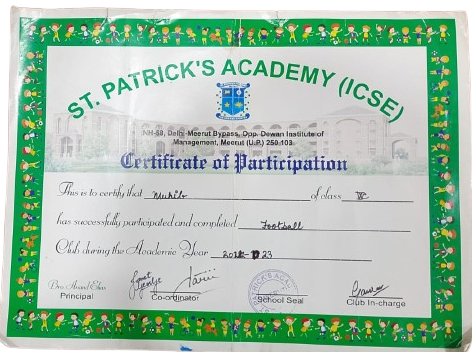 ST. PATRICK'S ACADEMY (ICSE)
NH-58, Delhi-Meerut Bypass, Opp. Dewan Institute of
Management, Meerut (U.P.) 250 103
Certificate of Participation
This is to certify that Mukib of class V
has successfully participated and completed Football
Club during the Academic Year 2022-23
Bro. Anand Ekka
Principal Co-ordinator School Seal Club In-charge